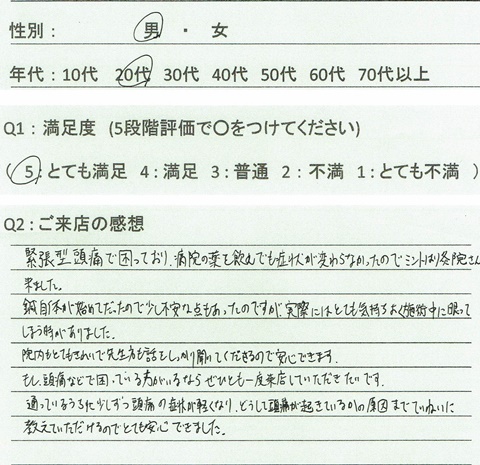 性別： 男 ・ 女
年代：10代 20代 30代 40代 50代 60代 70代以上
Q1：満足度 (5段階評価で〇をつけてください)
( 5：とても満足 4：満足 3：普通 2：不満 1：とても不満 )
Q2：ご来店の感想
緊張型頭痛で困っており、病院の薬を飲んでも症状が変わらなかったのでミントはり灸院さんへ
来ました。
鍼自体が始めてだったので少し不安な点もあったのですが、実際にはとても気持ちよく施術中に眠って
しまう時がありました。
院内もとてもきれいで先生方も話をしっかり聞いてくださるので安心できます。
もし、頭痛などで困っている方がいるならぜひとも一度来店していただきたいです。
通っているうちに少しずつ頭痛の症状が軽くなり、どうして頭痛が起きているかの原因までていねいに
教えていただけるのでとても安心できました。